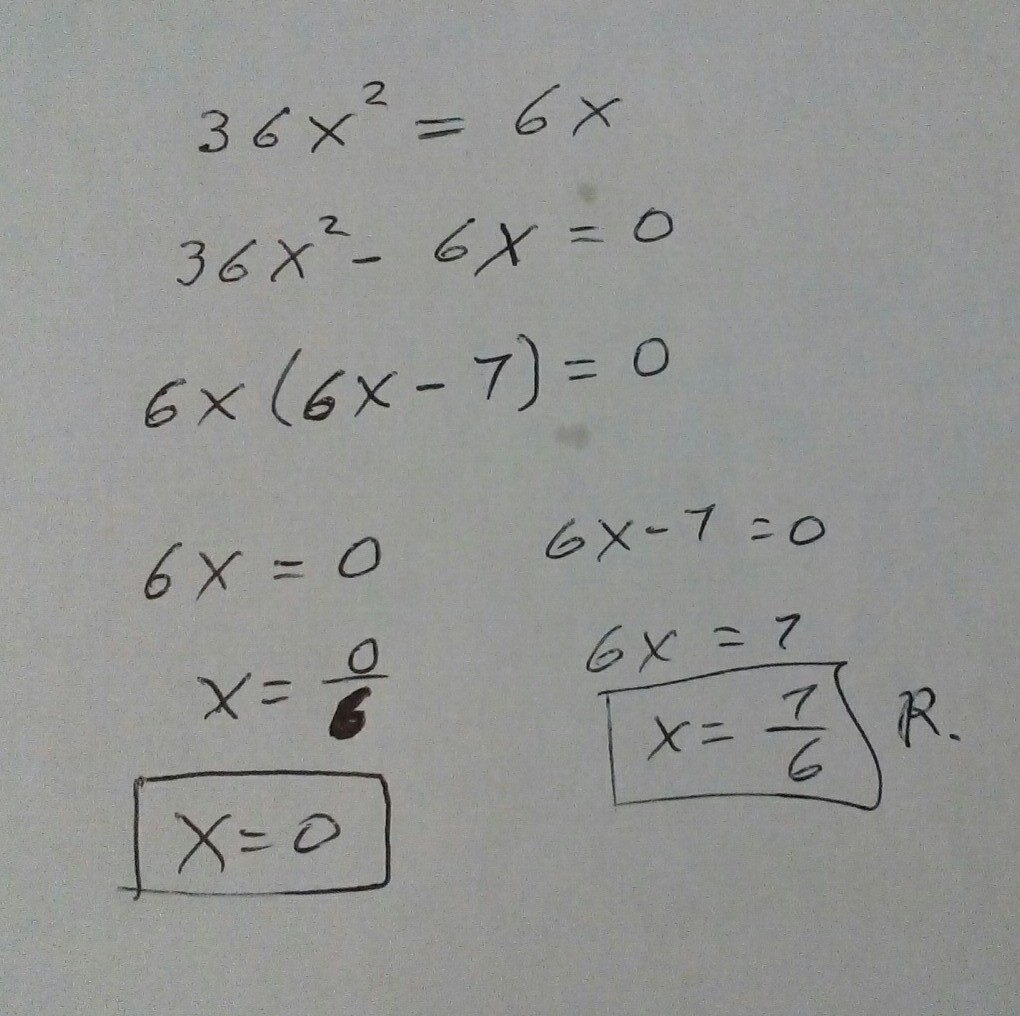 36x² = 6x
36x² - 6x = 0
6x (6x - 7) = 0
6x = 0
x = 0/6
x = 0
6x - 7 = 0
6x = 7
x = 7/6 R.